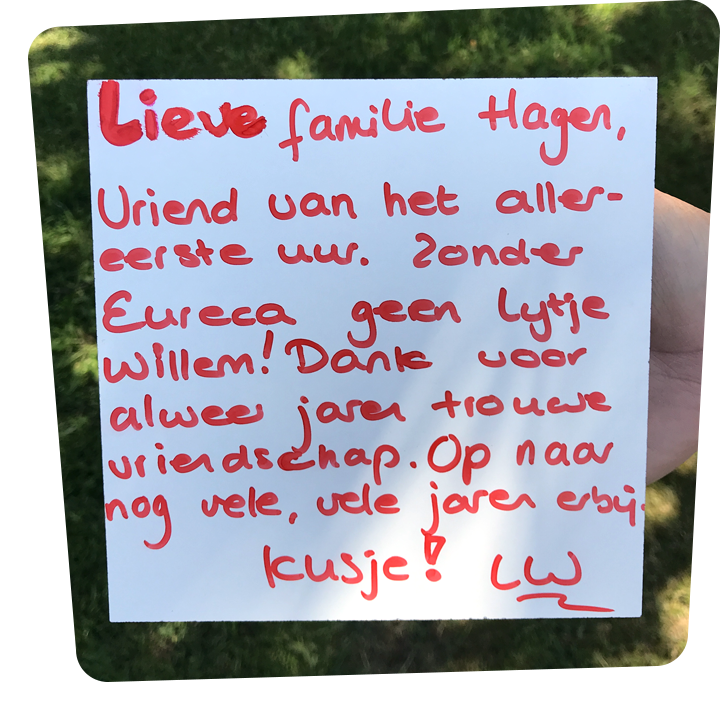 Lieve familie Hagen,
Vriend van het aller-
eerste uur. Zonder
Eureca geen Lytje
Willem! Dank voor
alweer jaren trouwe
vriendschap. Op naar
nog vele, vele jaren erbij.
kusje! LW